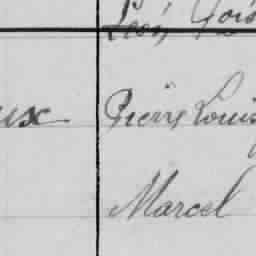 Léon
ux Pierre Louis
Marcel